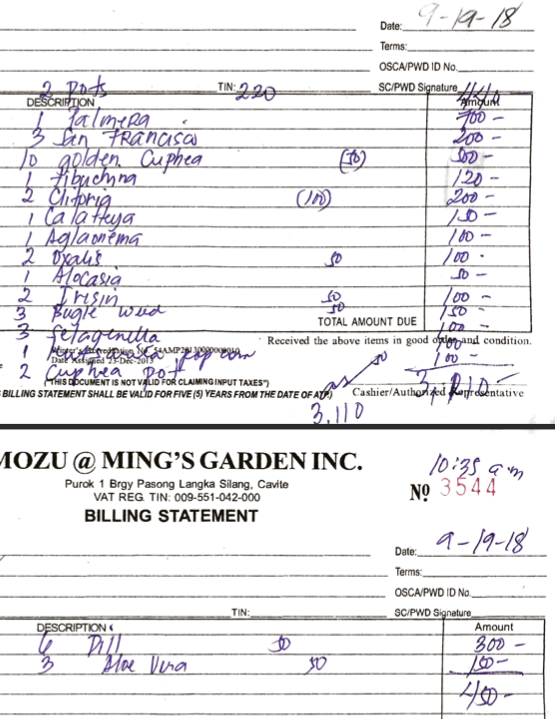 Date: 9-19-18
Terms:
OSCA/PWD ID No.
2 Pots TIN: 220 SC/PWD Signature 440
DESCRIPTION Amount
1 Palmera 700 -
3 San Francisco 200 -
10 golden Cuphea (50) 500 -
1 tibuchina 120 -
2 Clitoria (100) 200 -
1 Calatheya 150 -
1 Aglaonema 100 -
2 Oxalis 50 100 -
1 Alocasia 50 -
2 Irisin 50 100 -
3 Bugle weed 50 150 -
TOTAL AMOUNT DUE
3 Selagenella 100 -
Received the above items in good order and condition.
1 pop corn 100 -
Date Issued 23-Dec-2013
2 Cuphea pot 50 100 -
("THIS DOCUMENT IS NOT VALID FOR CLAIMING INPUT TAXES")
BILLING STATEMENT SHALL BE VALID FOR FIVE (5) YEARS FROM THE DATE OF ATP)
Cashier/Authorized Representative
3,110
MOZU @ MING'S GARDEN INC.
Purok 1 Brgy Pasong Langka Silang, Cavite
VAT REG. TIN: 009-551-042-000
BILLING STATEMENT
10:35 am
Nº 3544
Date: 9-19-18
Terms:
OSCA/PWD ID No.
TIN: SC/PWD Signature
DESCRIPTION Amount
6 Dill 50 300 -
3 Aloe Vera 50 150 -
450 -